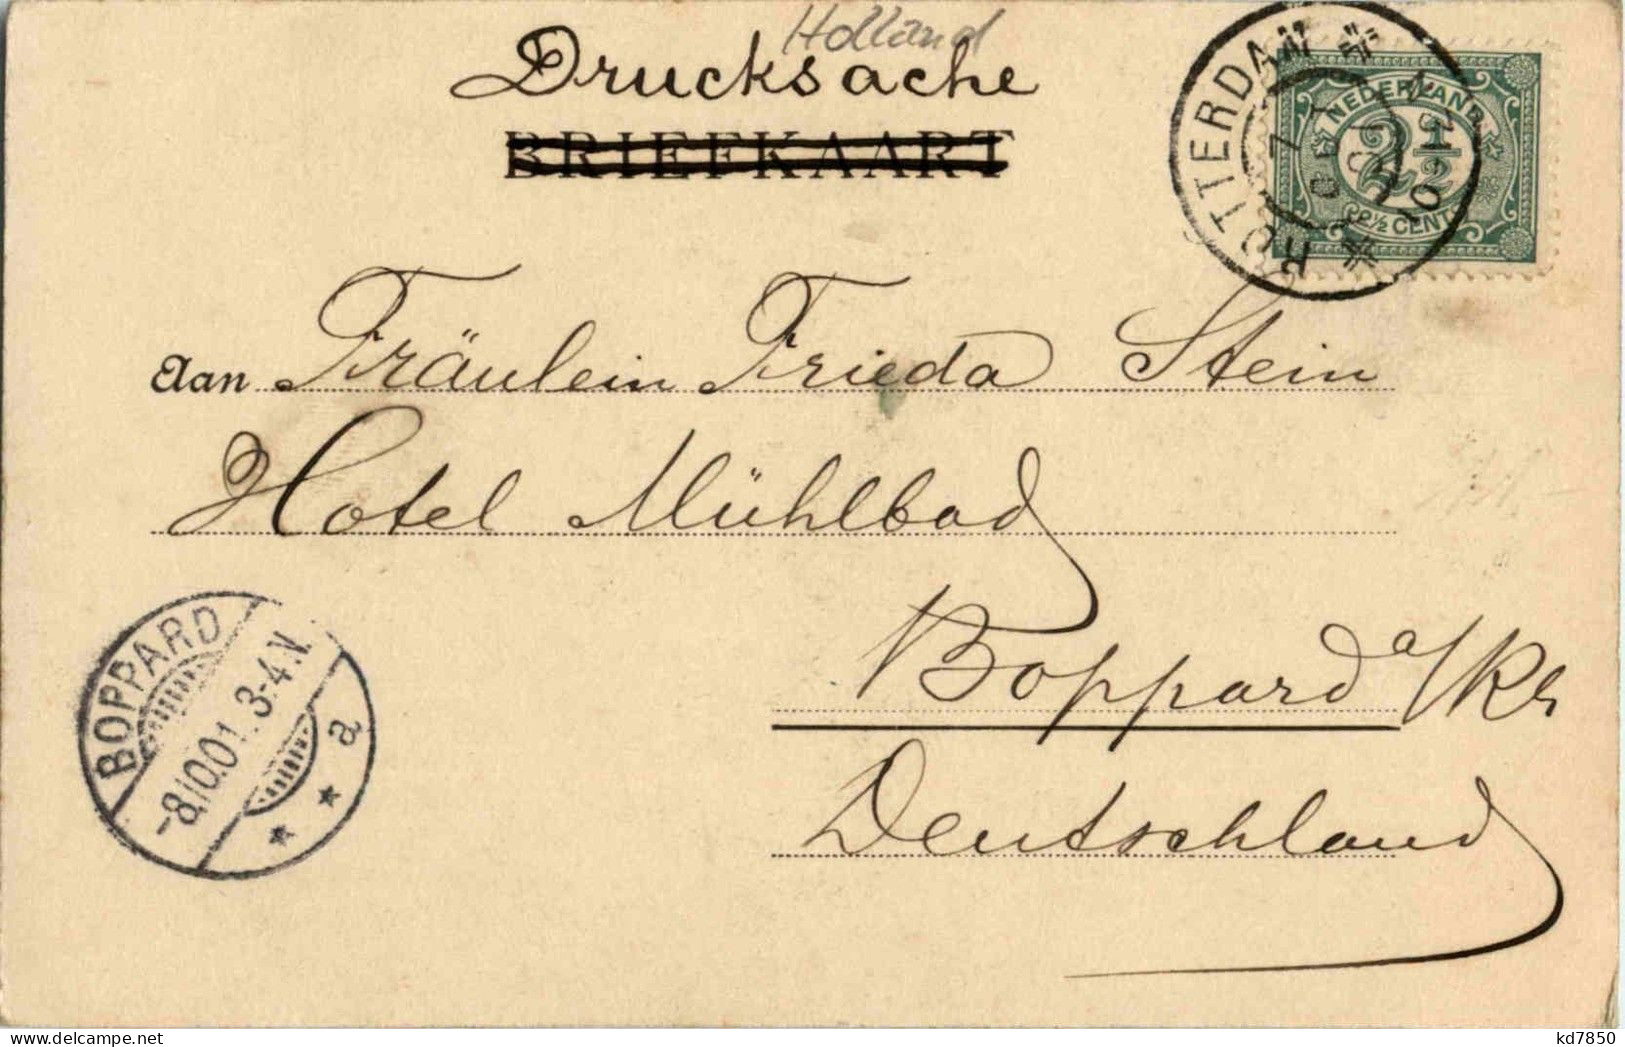 Holland
Drucksache
BRIEFKAART
NEDERLAND
2½
2½ CENT
ROTTERDAM
Aan Fräulein Frieda Stein
Hotel Mühlbad
Boppard a/Rh
Deutschland
BOPPARD
-8.10.01. 3-4.N.
a
kd7850